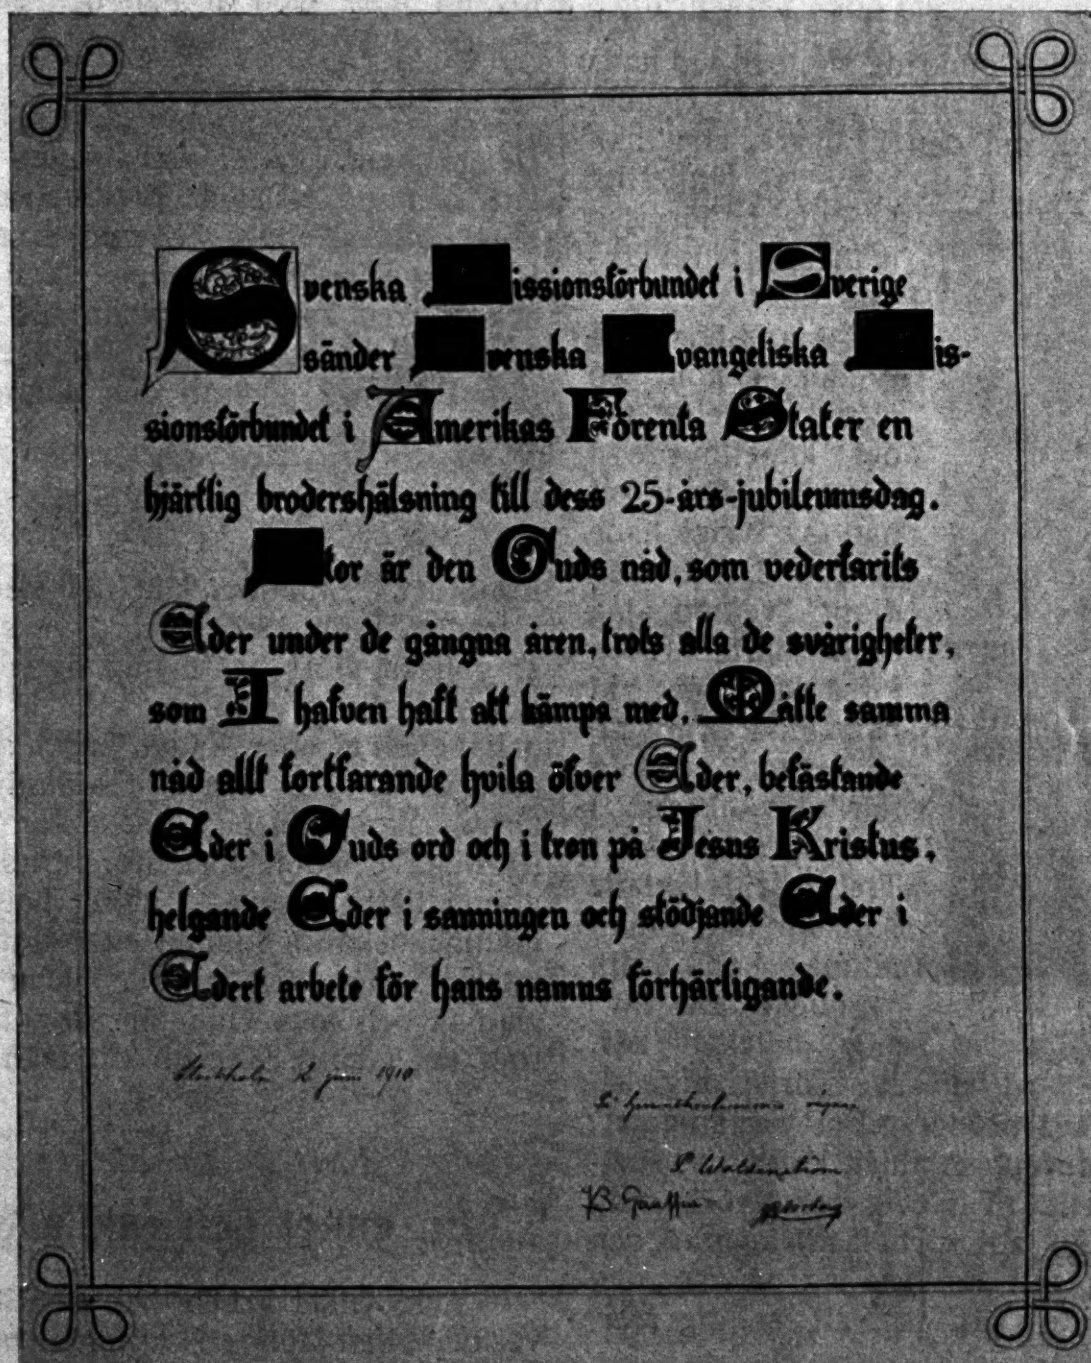 Svenska Missionsförbundet i Sverige
sänder Svenska Evangeliska Mis-
sionsförbundet i Amerikas Förenta Stater en
hjärtlig brodershälsning till dess 25-års-jubileumsdag.
Stor är den Guds nåd, som vederfarits
Eder under de gångna åren, trots alla de svårigheter,
som I hafven haft att kämpa med. Måtte samma
nåd allt fortfarande hvila öfver Eder, befästande
Eder i Guds ord och i tron på Jesus Kristus,
helgande Eder i sanningen och stödjande Eder i
Edert arbete för hans namns förhärligande.
Stockholm 2 juni 1910
P. Waldenström